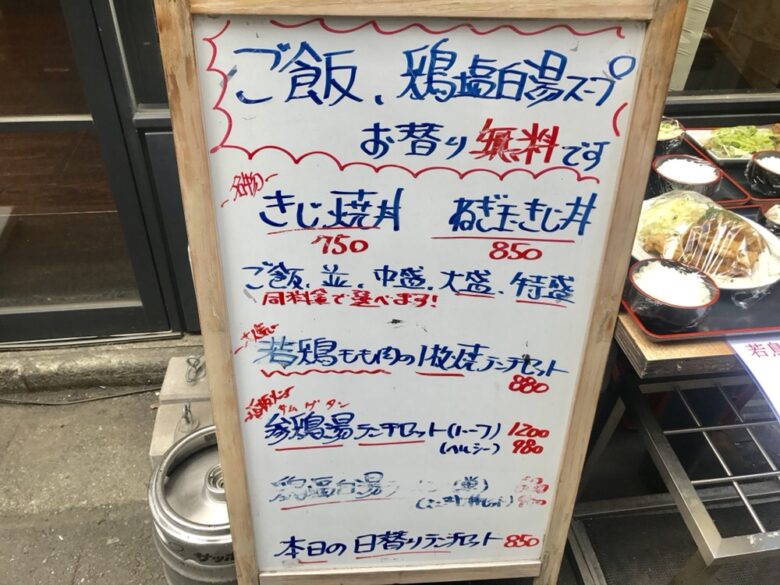 ご飯、鶏塩白湯スープ
お替り無料です
名物
きじ焼丼 ねぎ玉きじ丼
750 850
ご飯、並、中盛、大盛、特盛
同料金で選べます!
若鶏もも肉の1枚焼ランチセット
880
サムゲタン
参鶏湯ランチセット(ハーフ) 1200
(ヘルシー) 980
鶏塩白湯ラーメン
本日の日替りランチセット 850
若鳥